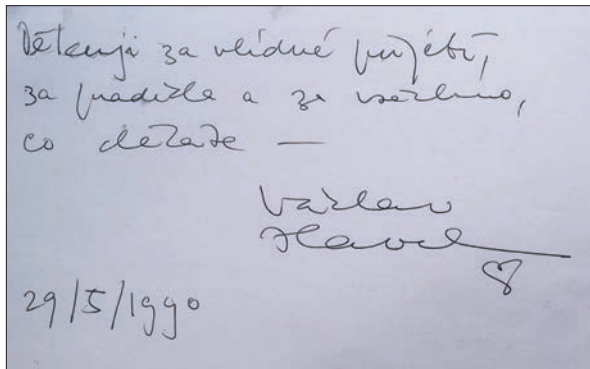 Děkuji za vlídné přijetí,
za pradidla a za všechno,
co děláte —
Václav
Havel
29/5/1990